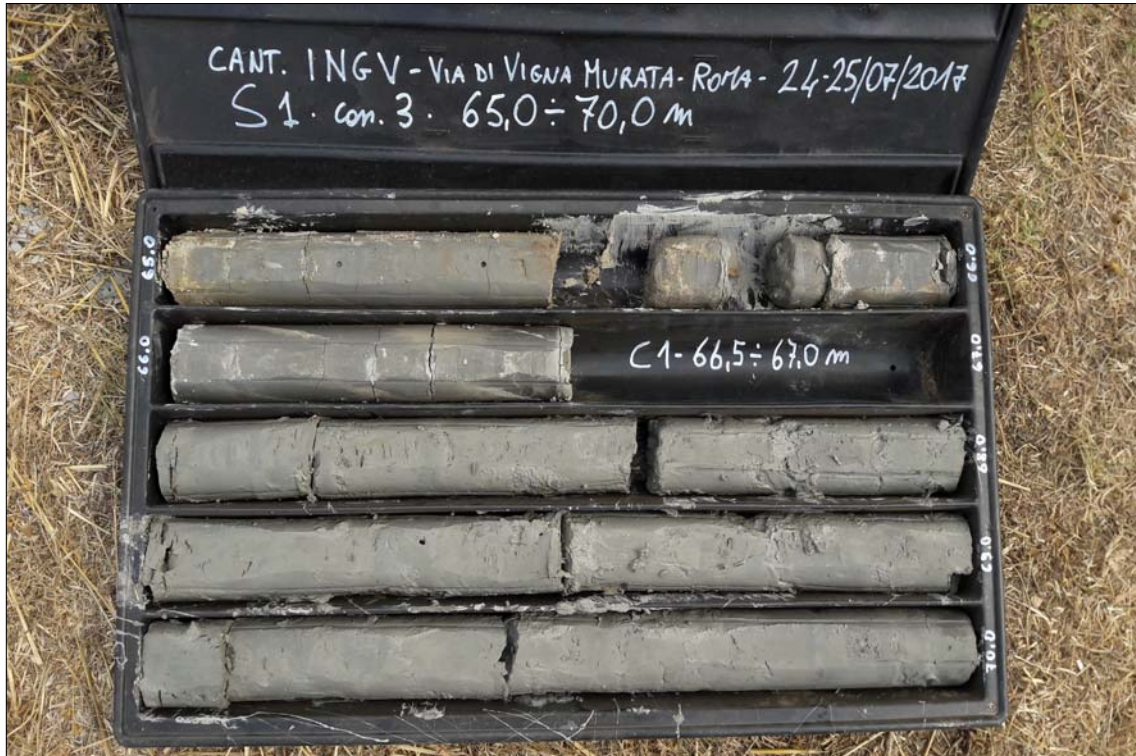 CANT. INGV - VIA DI VIGNA MURATA - ROMA - 24-25/07/2017
S1 . con. 3 . 65,0 ÷ 70,0 m
65.0
66.0
66.0
C1 - 66,5 ÷ 67,0 m
67.0
68.0
69.0
70.0